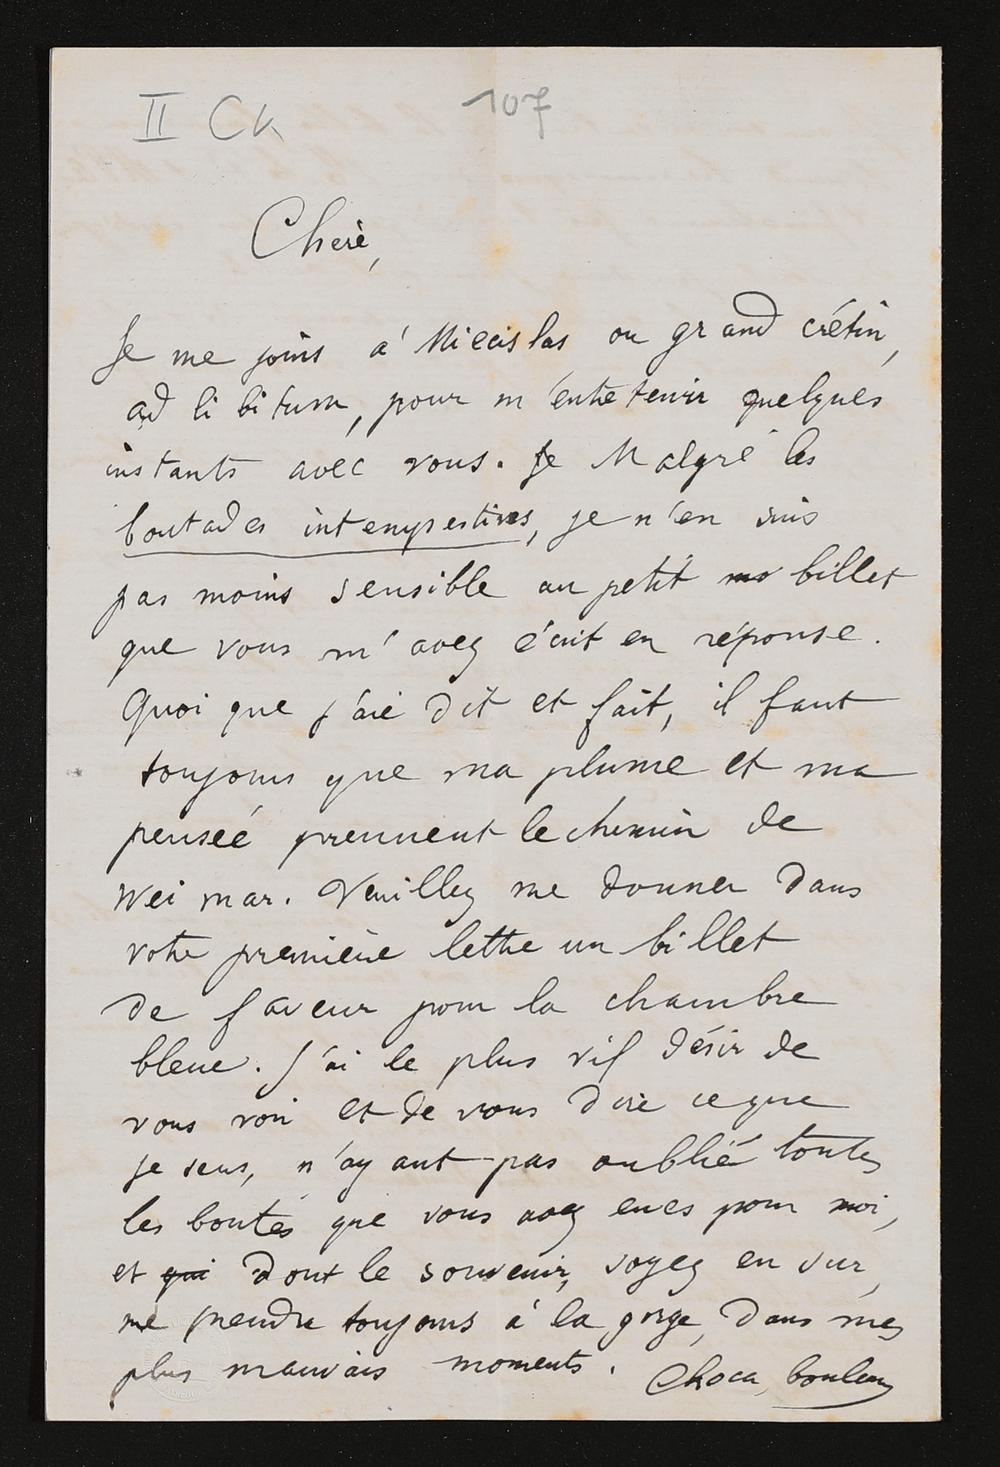 II Ck 107
Cherè,
Je me joins a' Miecislas ou grand crétin,
ad libitum, pour m'entretenir quelques
instants avec vous. Je Malgré les
boutades intempestives, je n'en suis
pas moins sensible au petit mo billet
que vous m'avez écrit en réponse.
Quoi que j'aie dit et fait, il faut
toujours que ma plume et ma
penseé prennent le chemin de
Weimar. Veuillez me donner dans
votre première lettre un billet
de faveur pour la chambre
bleue. J'ai le plus vif désir de
vous voir et de vous dire ce que
je sens, n'ayant pas oublié toutes
les bontés que vous avez eues pour moi,
et qui dont le souvenir, soyez en sur,
me prendra toujours à la gorge, dans mes
plus mauvais moments. Choca